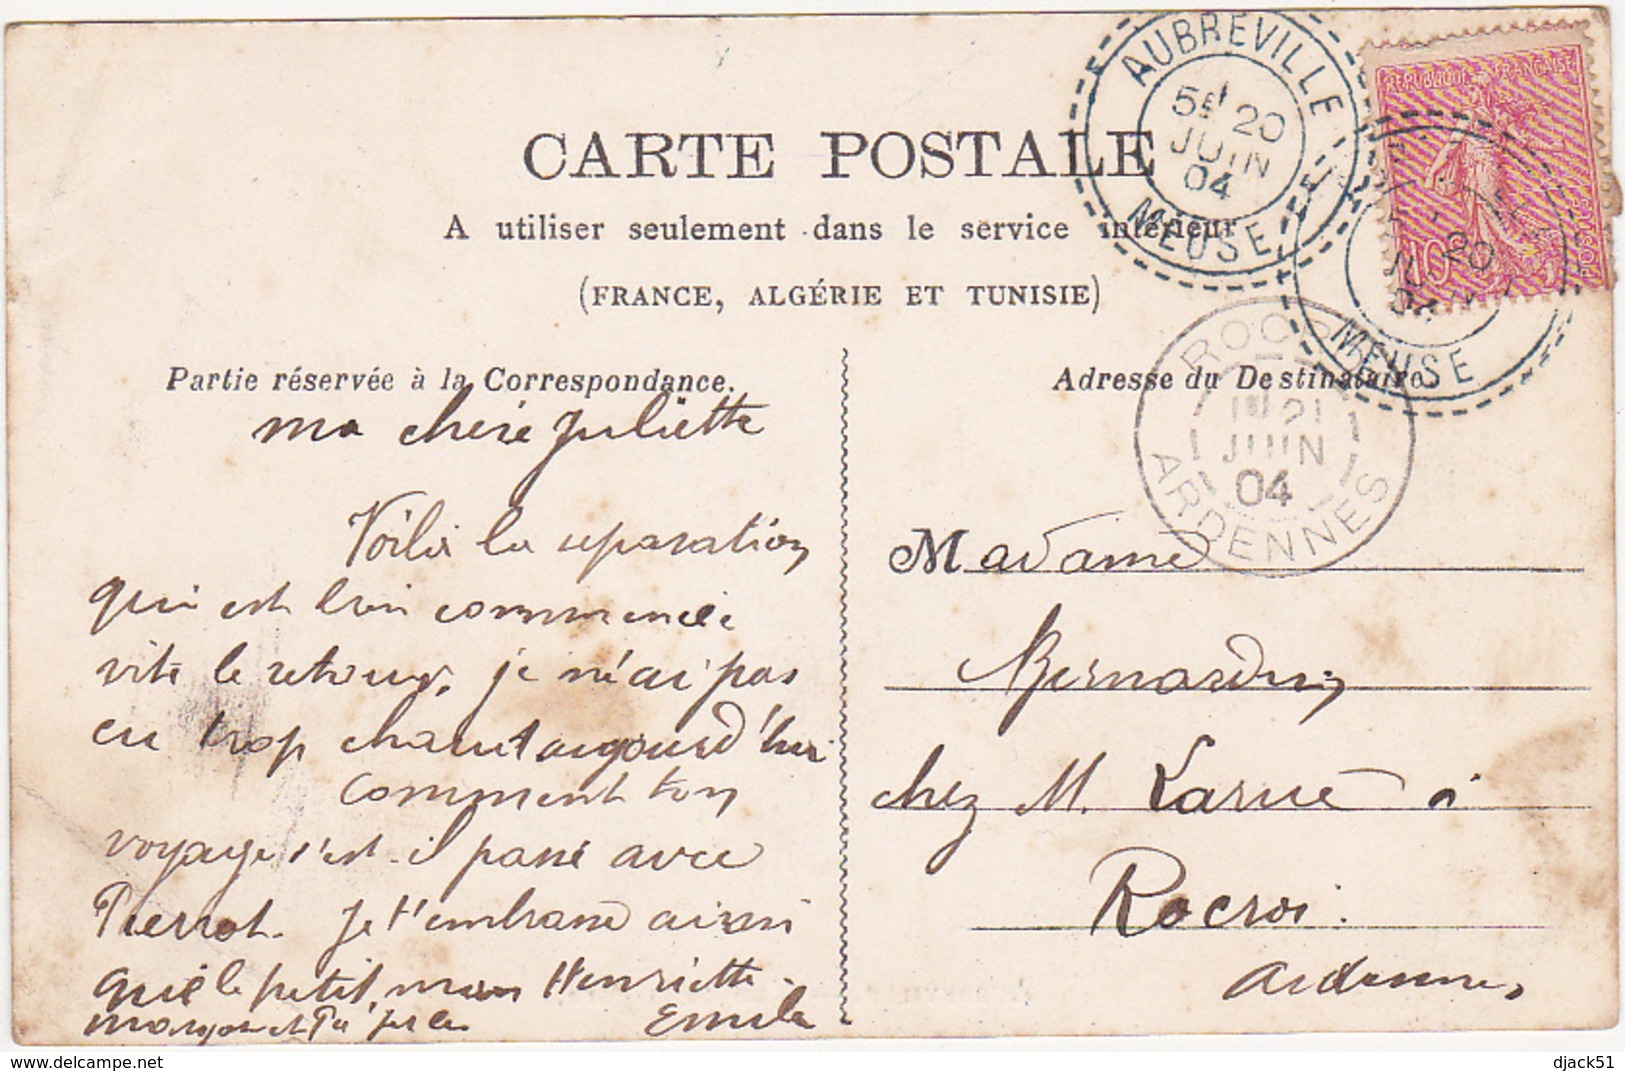 CARTE POSTALE
A utiliser seulement dans le service intérieur
(FRANCE, ALGÉRIE ET TUNISIE)
Partie réservée à la Correspondance.
Adresse du Destinataire
AUBREVILLE
5E 20
JUIN
04
MEUSE
REPUBLIQUE FRANÇAISE
10
POSTES
20
04
MEUSE
ROCROI
1E 21
JUIN
04
ARDENNES
ma chère Juliette
Voilà la séparation
qui est bien commencée
vite le retour, je n'ai pas
eu trop chaud aujourd'hui
Comment ton
voyage s'est-il passé avec
Pierrot. Je t'embrasse ainsi
que le petit, Henriette.
Madame
Bernardin
chez M. Larue à
Rocroi.
Ardennes,
djack51